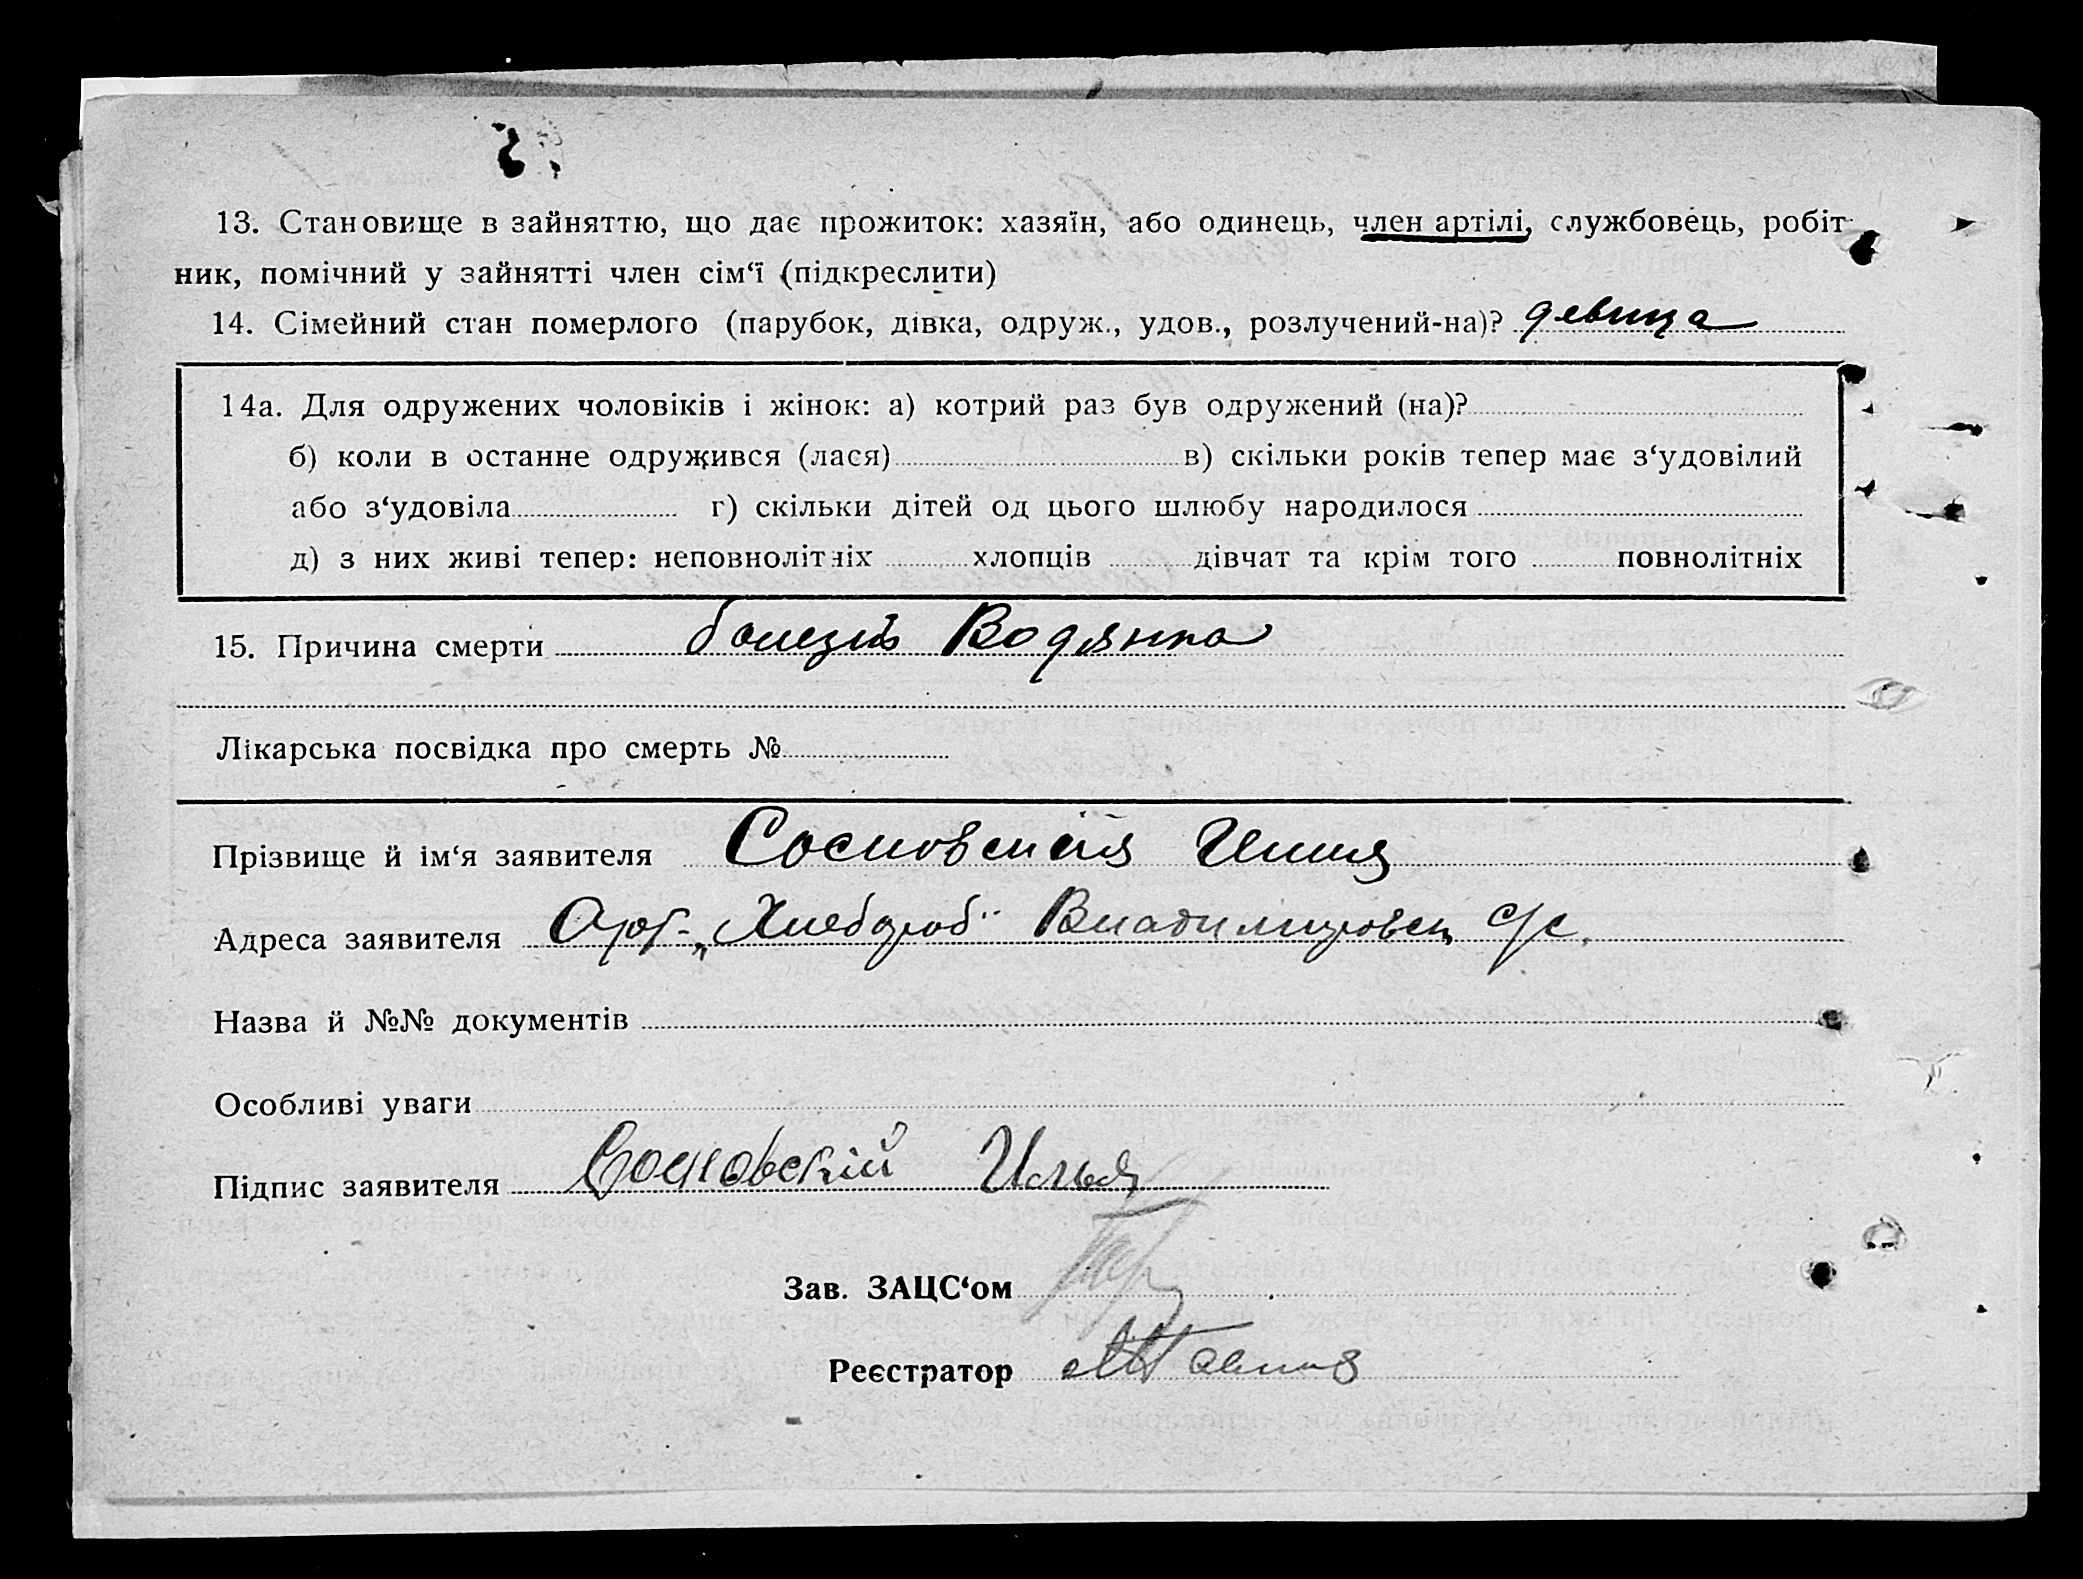 13. Становище в зайняттю, що дає прожиток: хазяїн, або одинець, член артілі, службовець, робіт-
ник, помічний у зайнятті член сім‘ї (підкреслити)
14. Сімейний стан померлого (парубок, дівка, одруж., удов., розлучений-на)? девица
14а. Для одружених чоловіків і жінок: а) котрий раз був одружений (на)?
б) коли в останнє одружився (лася) в) скільки років тепер має з‘удовілий
або з‘удовіла г) скільки дітей од цього шлюбу народилося
д) з них живі тепер: неповнолітніх хлопців дівчат та крім того повнолітніх
15. Причина смерти болезнь Водянка
Лікарська посвідка про смерть №
Прізвище й ім‘я заявителя Сосновский Илия
Адреса заявителя Арт. „Хлебороб" Владимировец с/с.
Назва й №№ документів
Особливі уваги
Підпис заявителя Сосновскій Илья
Зав. ЗАЦС‘ом
Реєстратор